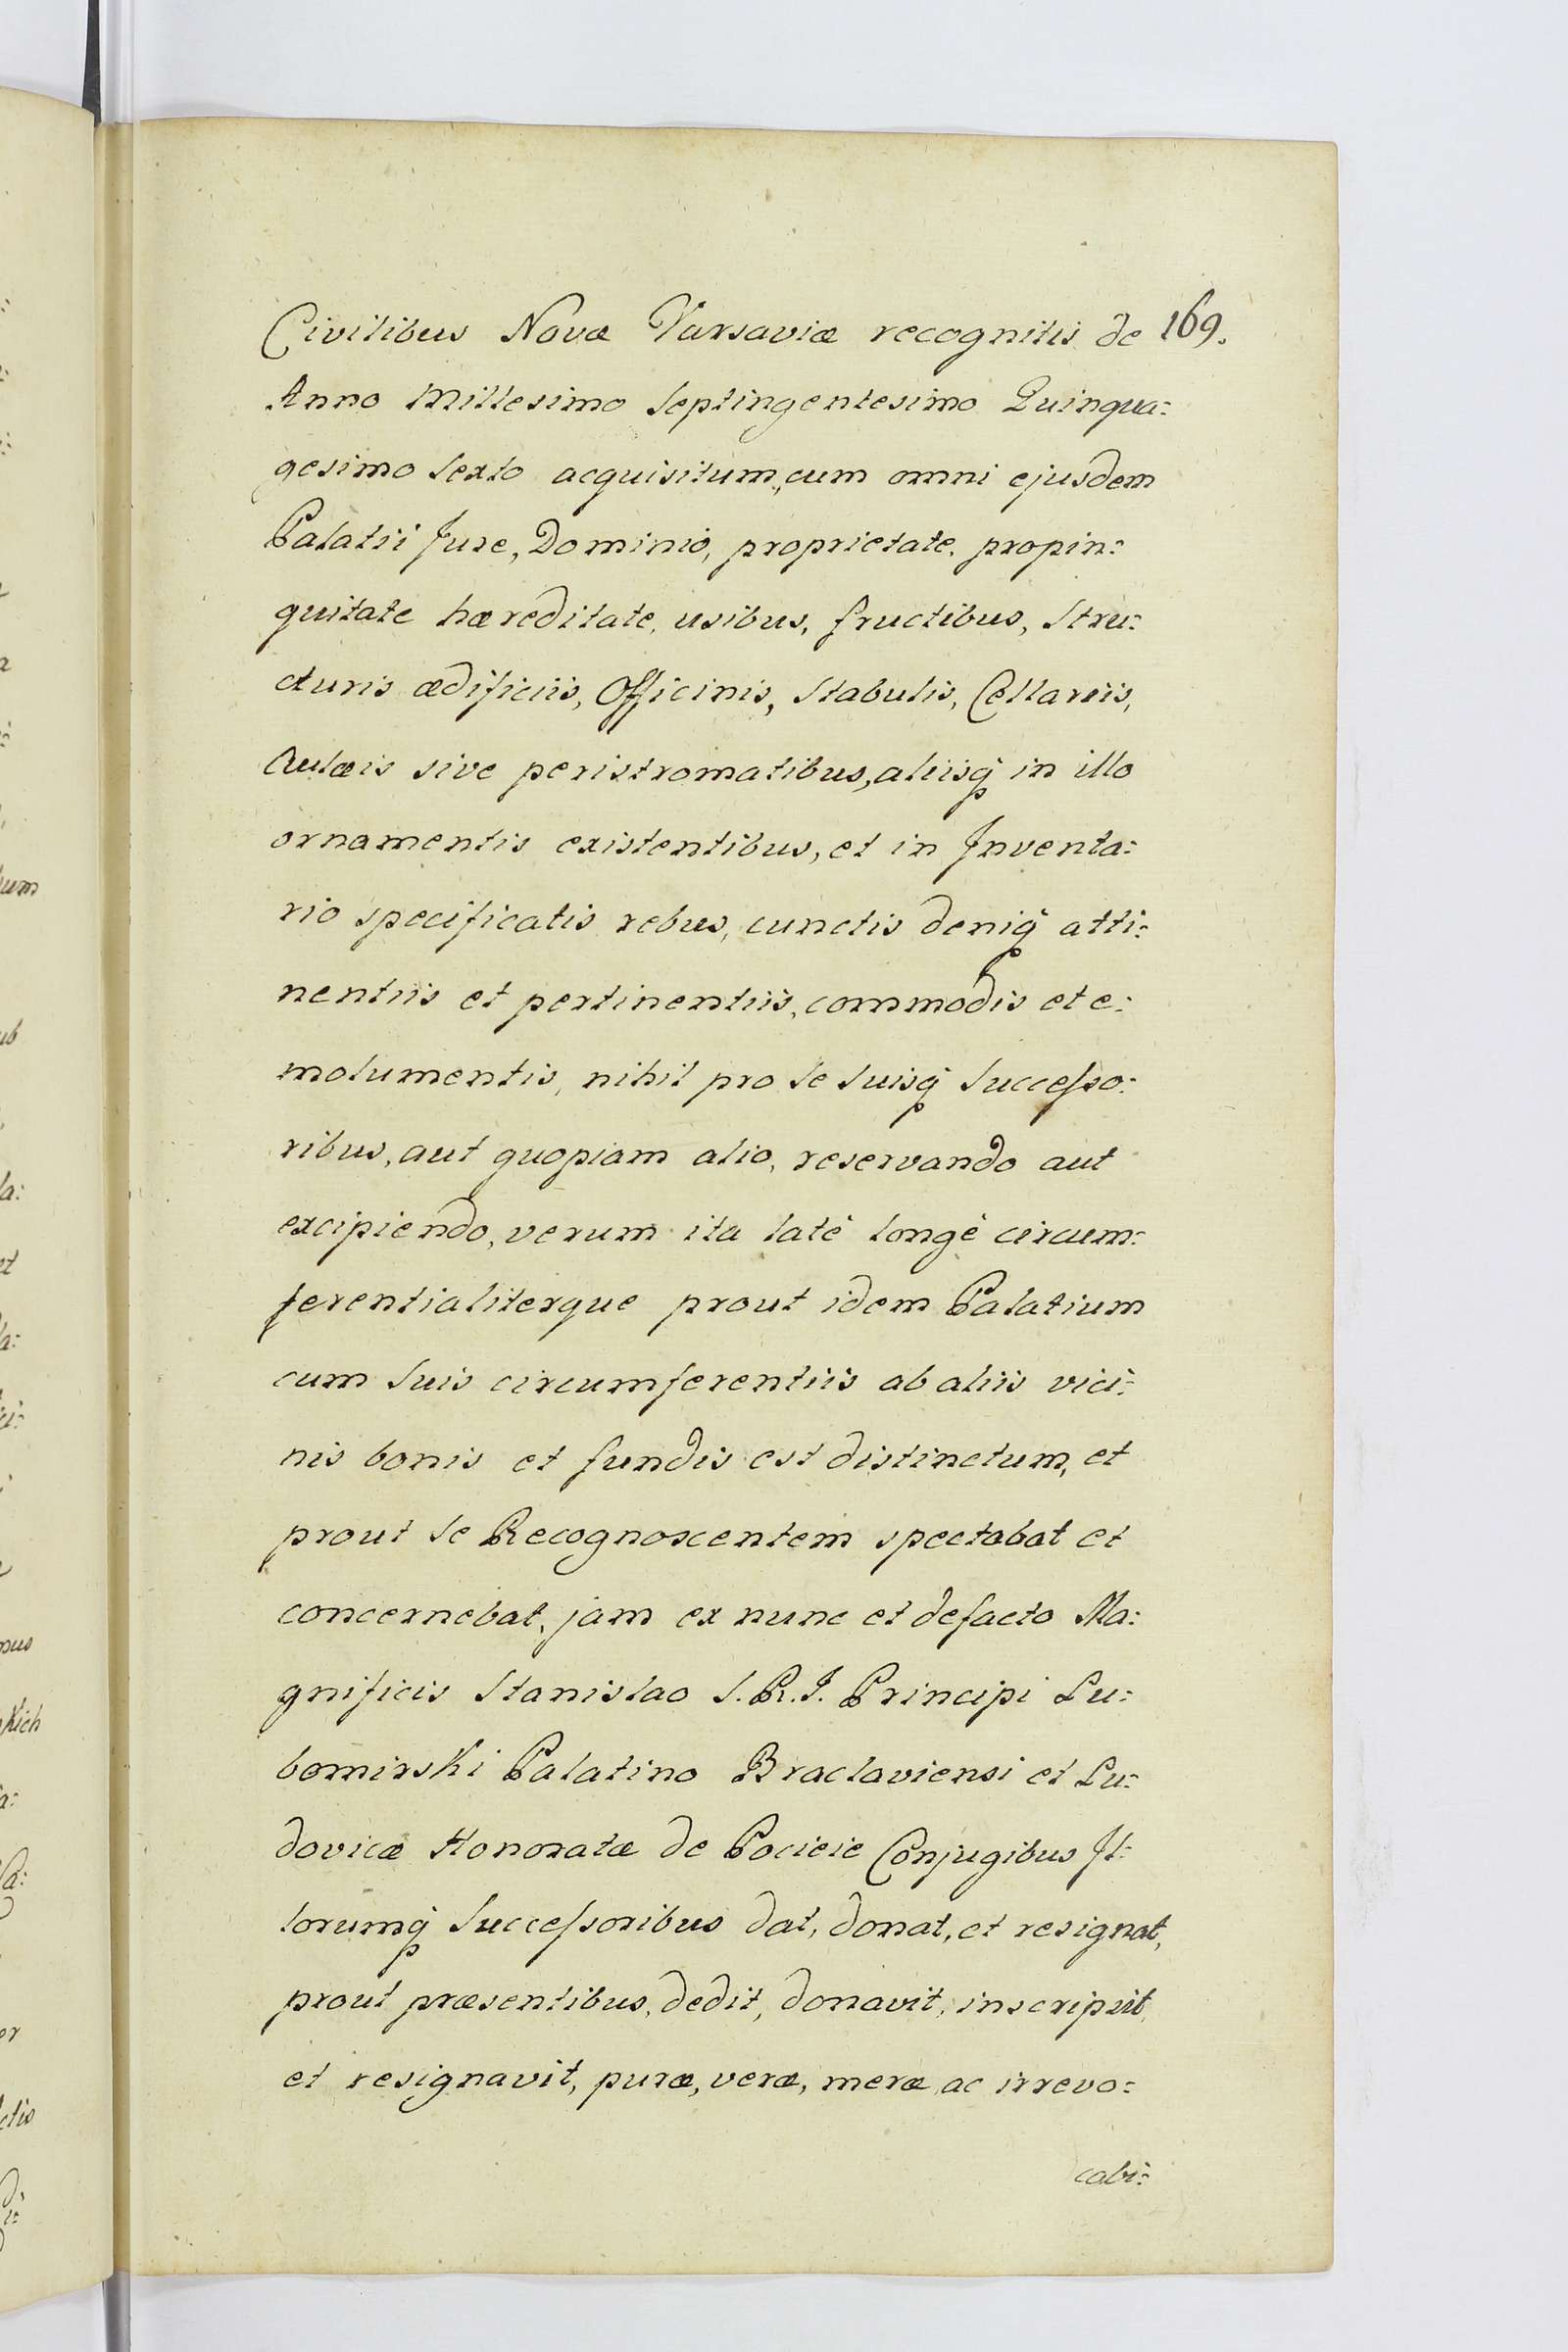 Civilibus Novæ Varsaviæ recognitis de 169.
Anno Millesimo Septingentesimo Quinqua=
gesimo Sexto acquisitum, cum omni ejusdem
Palatii Jure, Dominio, proprietate, propin=
quitate hæreditate, usibus, fructibus, Stru=
cturis ædificiis, Officinis, Stabulis, Cellariis,
Aulæis sive peristromatibus, aliisq́ in illo
ornamentis existentibus, et in Inventa=
rio specificatis rebus, cunctis deniq́ atti=
nentiis et pertinentiis, commodis et e=
molumentis, nihil pro se Suisq́ Succeſso=
ribus, aut quopiam alio, reservando aut
excipiendo, verum ita latè longè circum=
ferentialiterque prout idem Palatium
cum Suis circumferentiis ab aliis vici=
nis bonis et fundis est distinctum, et
prout Se Recognoscentem spectabat et
concernebat, jam ex nunc et defacto Ma=
gnificis Stanislao S. R. I. Principi Lu=
bomirski Palatino Braclaviensi et Lu=
dovicæ Honoratæ de Pocieie Conjugibus Il=
lorumq́ Succeſsoribus dat, donat, et resignat,
prout præsentibus, dedit, donavit, inscripsit,
et resignavit, puræ, veræ, meræ, ac irrevo=
cabi=
um
ub
la:
et
a:
ci:
nus
kich
a:
er
ctis